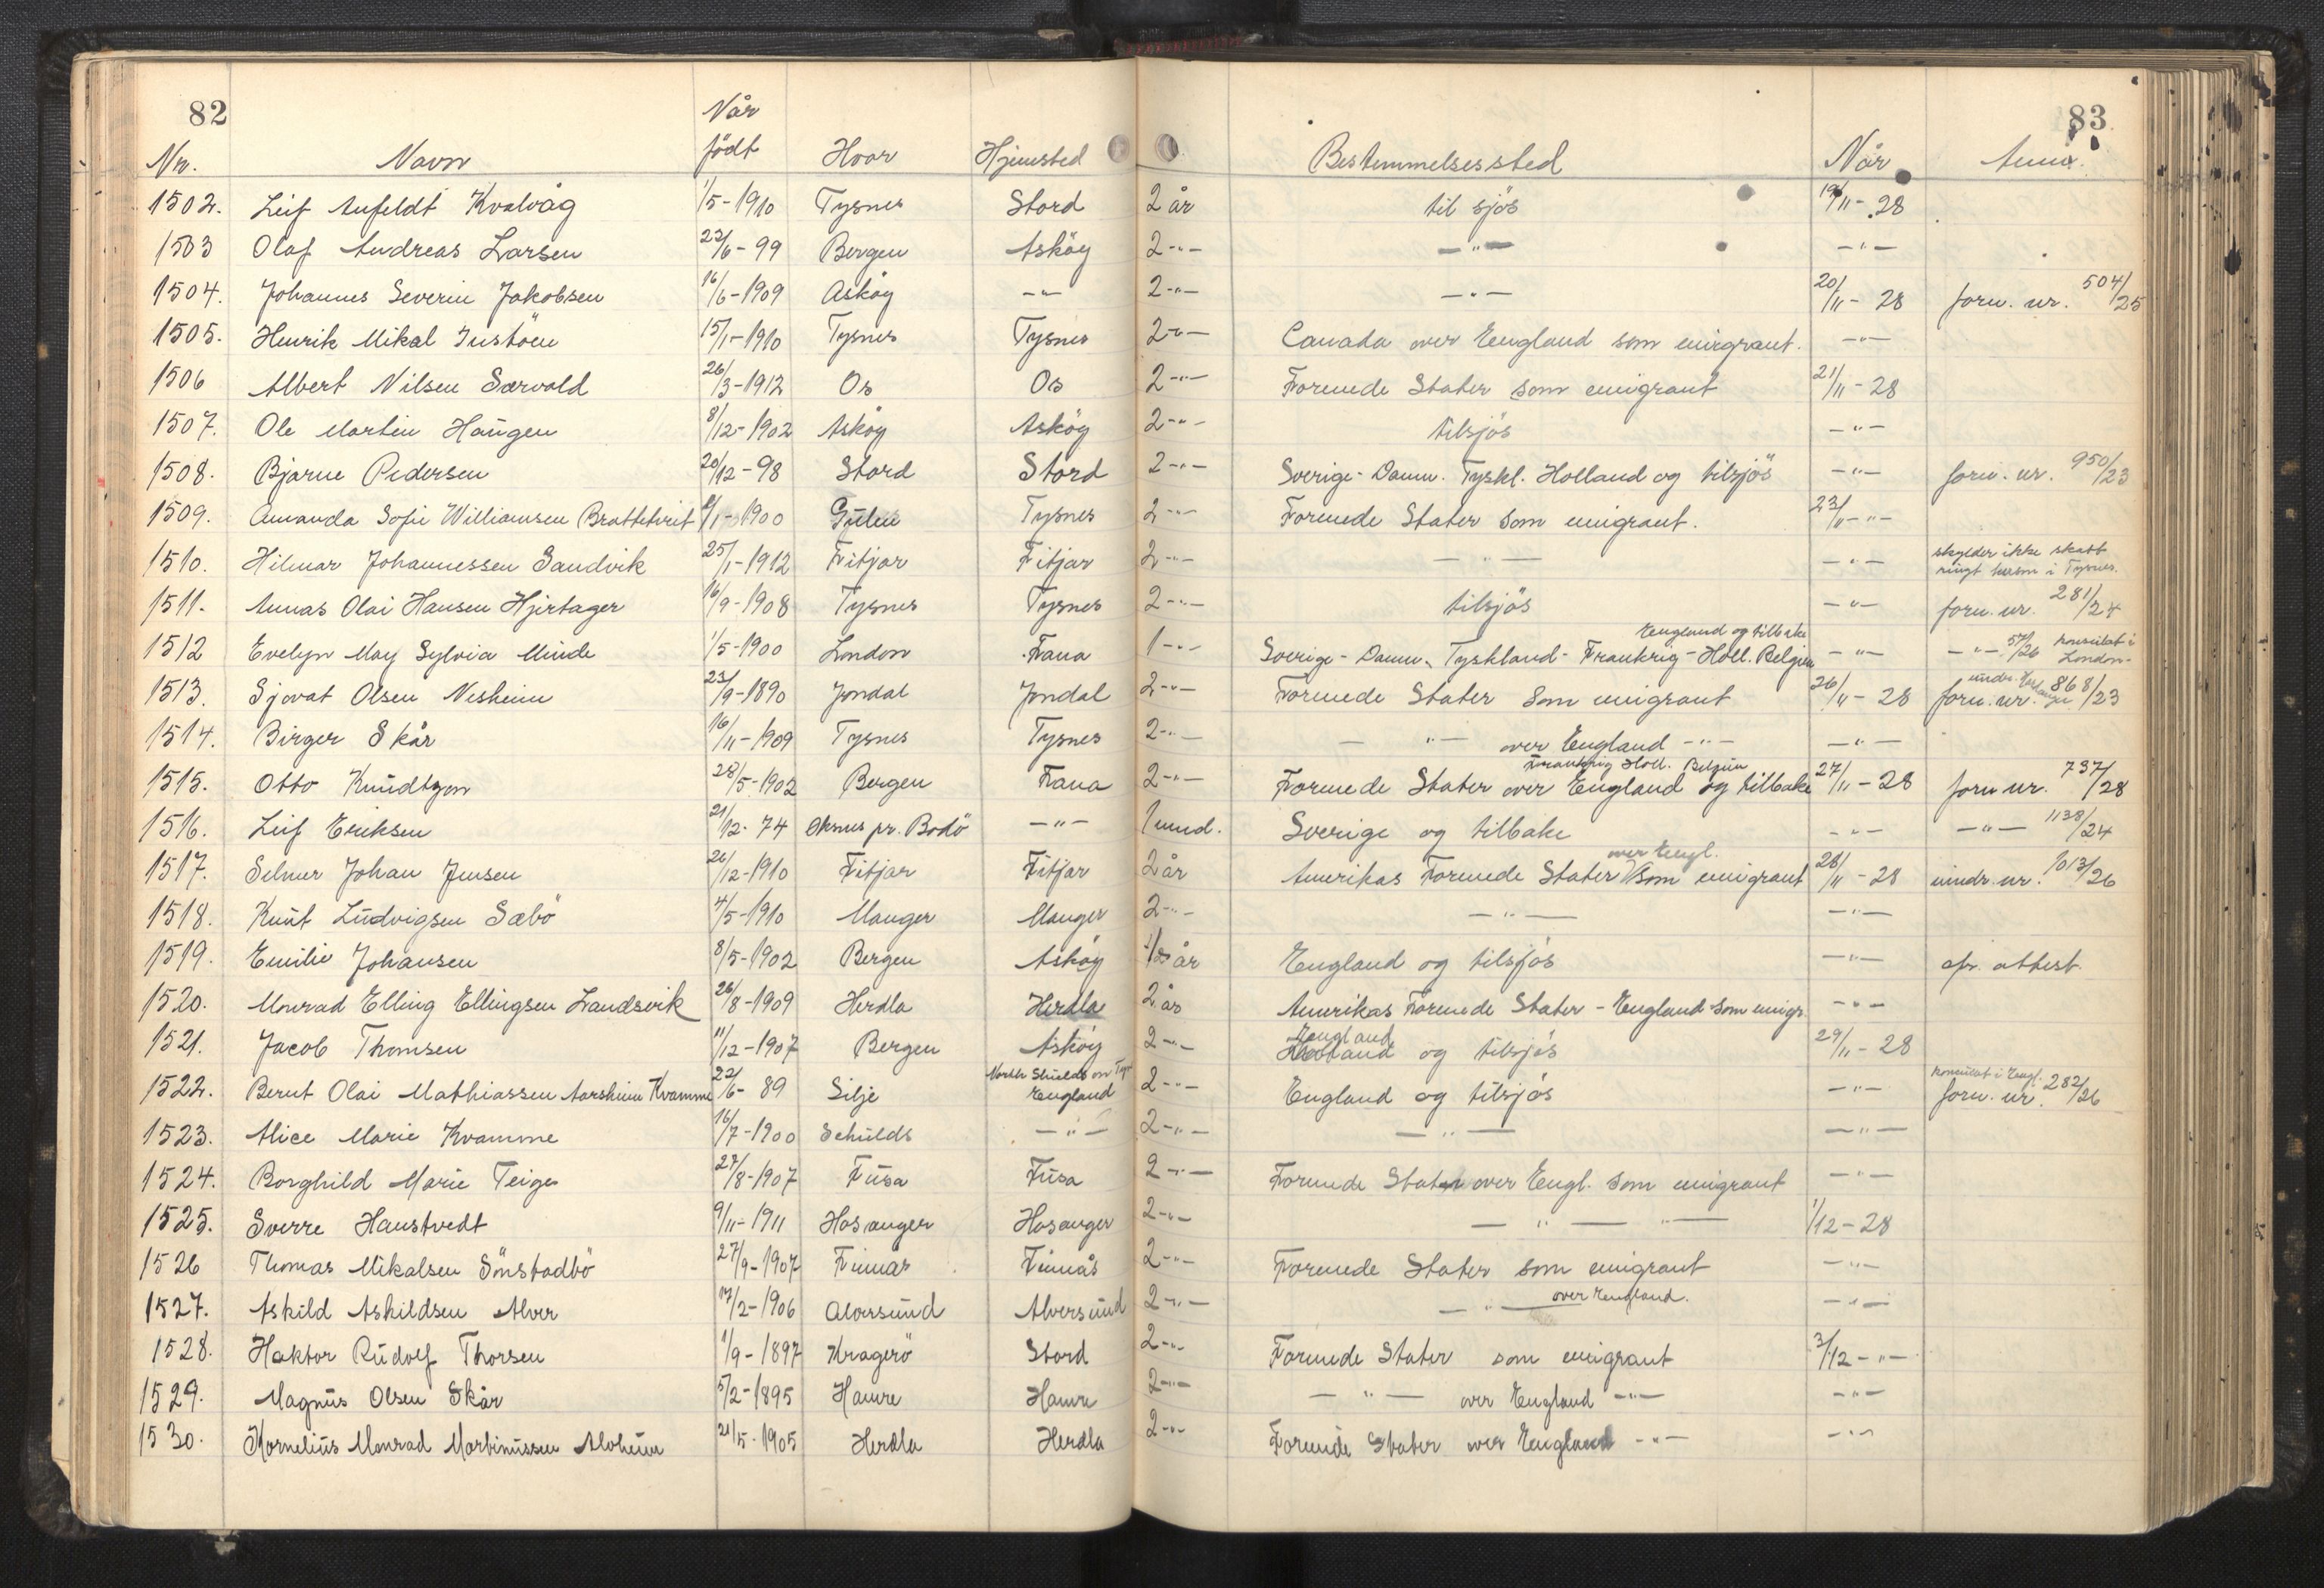 82
83
Nr. Navn Når födt Hvor Hjemsted Bestemmelsessted Når Anm.
1502. Leif Anfeldt Kvalvåg 1/5-1910 Tysnes Stord 2 år til sjös 19/11-28
1503 Olaf Andreas Larsen 23/6-99 Bergen Asköy 2-"- -"- -"-
1504. Johannes Severin Jakobsen 16/6-1909 Asköy -"- 2-"- -"- 20/11-28 forn. nr. 504/25
1505. Henrik Mikal 15/1-1910 Tysnes Tysnes 2-"- Canada over England som emigrant. -"-
1506 Albert Nilsen Særvold 26/3-1912 Os Os 2-"- Forenede Stater som emigrant 21/11-28
1507. Ole Martin Haugen 8/12-1902 Asköy Asköy 2-"- tilsjös -"-
1508. Bjarne Pedersen 20/12-98 Stord Stord 2-"- Sverige-Danm. Tyskl. Holland og tilsjös -"- forn. nr. 950/23
1509. Amanda Sofie Williamsen Brattetveit /1-1900 Gulen Tysnes 2-"- Forenede Stater som emigrant. 23/11-"-
1510. Hilmar Johannessen Sandvik 25/1-1912 Fitjar Fitjar 2-"- -"- -"- skylder ikke skatt
i Tysnes.
1511. Annas Olai Hansen Hjertager 16/9-1908 Tysnes Tysnes 2-"- tilsjös -"- forn. nr. 281/24
England og tilbake
1512 Evelyn May Sylvia Minde 1/5-1900 London Fana 1-"- Sverige-Danm. Tyskland-Frankrig-Holl. Belgien -"- -"- 57/26 konsulat i London-
1513. Sjovat Olsen Nesheim 23/9-1890 Jondal Jondal 2-"- Forenede Stater som emigrant 26/11-28 forn. nr. 868/23
1514. Birger Skår 16/11-1909 Tysnes Tysnes 2-"- -"- over England -"- -"-
Frankrig Holl. Belgien
1515. Otto Knudtzon 28/5-1902 Bergen Fana 2-"- Forenede Stater over England og tilbake 27/11-28 forn nr. 737/28
1516. Leif Eriksen 21/12-74 Öksnes pr. Bodö -"- 1 mnd. Sverige og tilbake -"- -"- 1138/24
over Engl.
1517. Selmer Johan Jensen 26/12-1910 Fitjar Fitjar 2 år Amerikas Forenede Stater som emigrant 28/11-28 mndr. nr. 1013/26
1518. Knut Ludvigsen Sæbö 4/5-1910 Manger Manger 2-"- -"- -"-
1519. Emilie Johansen 8/5-1902 Bergen Asköy 1/2 år England og tilsjös -"- attest.
1520. Monrad Elling Ellingsen Landsvik 26/8-1909 Herdla Herdla 2 år Amerikas Forenede Stater - England som emigr. -"-
England
1521. Jacob Thomsen 11/12-1907 Bergen Asköy 2-"- og tilsjös 29/11-28
1522. Bernt Olai Mathiassen Aarsheim Kvamme 22/6-89 Silje North Shields on Tyne England 2-"- England og tilsjös -"- konsulat i Engl. forn. nr. 282/26
1523. Alice Marie Kvamme 16/7-1900 Schulds -"- 2-"- -"- -"-
1524. Borghild Marie Teige 27/8-1907 Fusa Fusa 2-"- Forenede Stater over Engl. som emigrant -"-
1525. Sverre Haustvedt 9/11-1911 Hosanger Hosanger 2-"- -"- -"- 1/12-28
1526 Thomas Mikalsen Sönstadbö 27/9-1907 Finnås Finnås 2-"- Forenede Stater som emigrant -"-
1527. Askild Askildsen Alver 17/2-1906 Alversund Alversund 2-"- -"- over England. -"-
1528. Haktor Rudolf Thorsen 1/9-1897 Kragerö Stord 2-"- Forenede Stater som emigrant 3/12-"-
1529. Magnus Olsen Skår 5/2-1895 Hamre Hamre 2-"- -"- over England -"- -"-
1530. Kornelius Monrad Martinussen 21/5-1905 Herdla Herdla 2-"- Forenede Stater over England -"- -"-